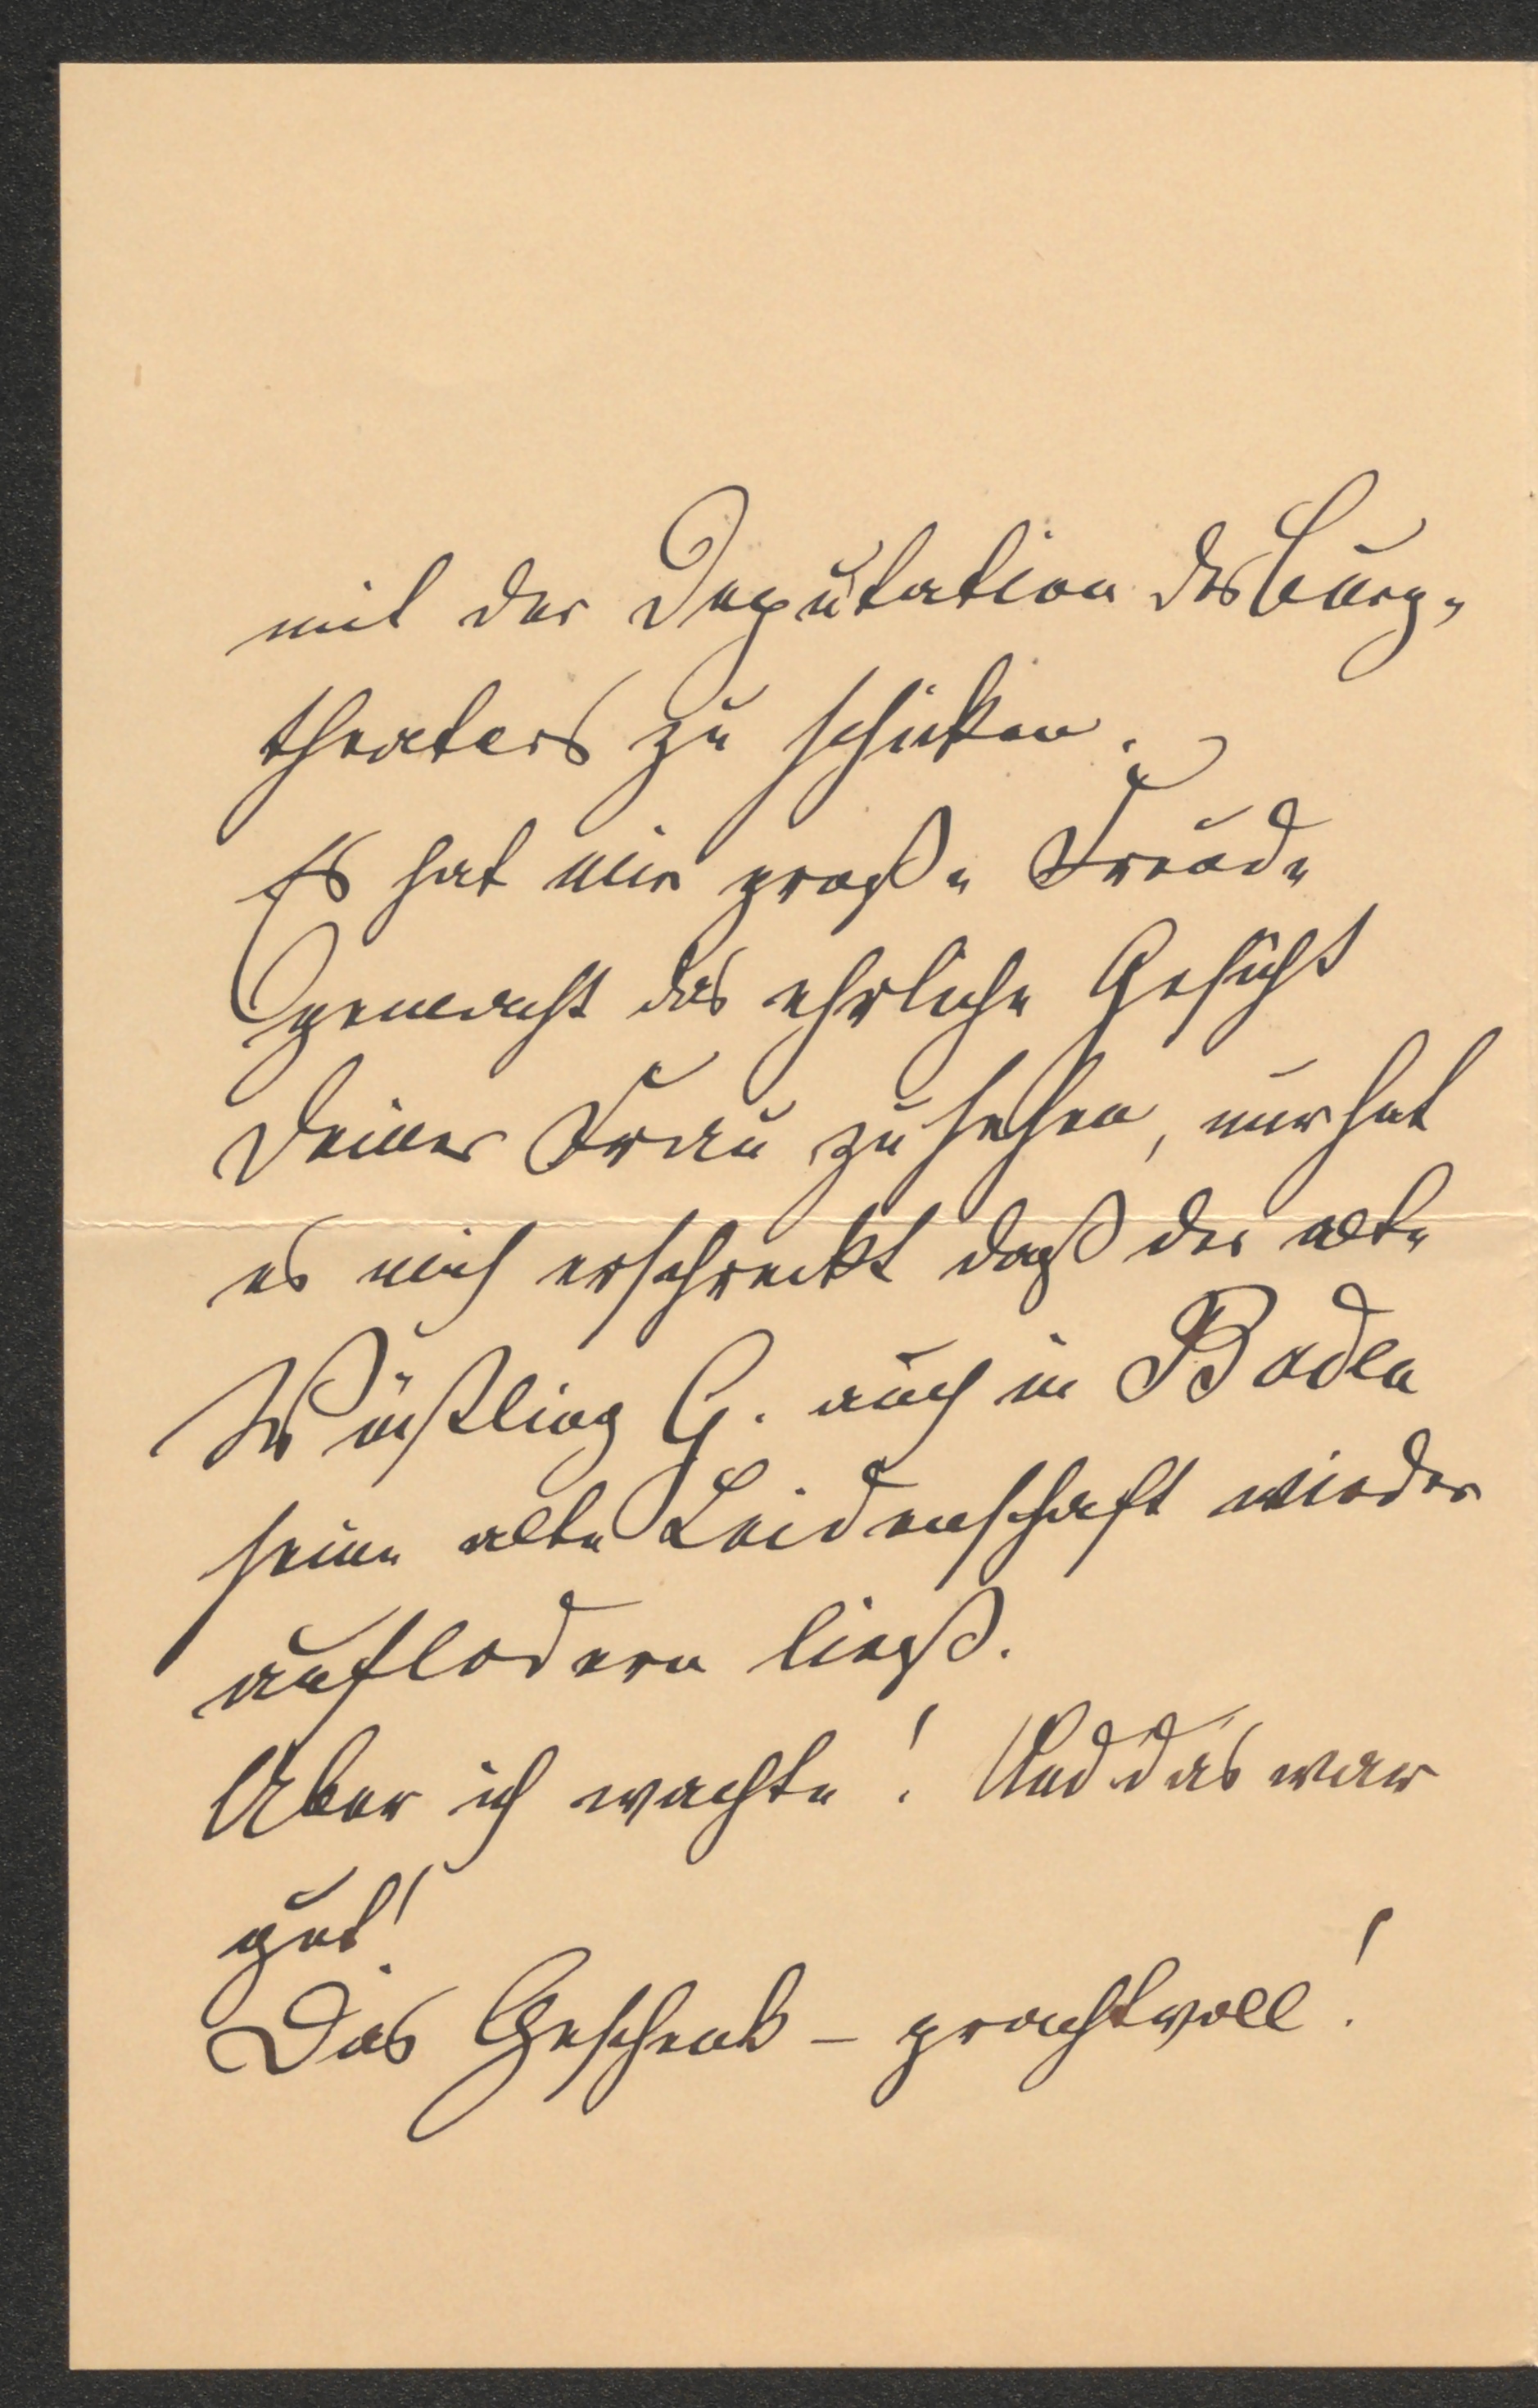 mit der Deputation des Burg-
theaters zu schicken.
Es hat mir große Freude
gemacht das ehrliche Gesicht
Deiner Frau zu sehen, nur hat
es mich erschreckt daß der alte
Wüstling G. auch in Baden
seine alte Leidenschaft wieder
auflodern ließ.
Aber ich wachte! Und das war
gut!
Das Geschenk – prachtvoll!